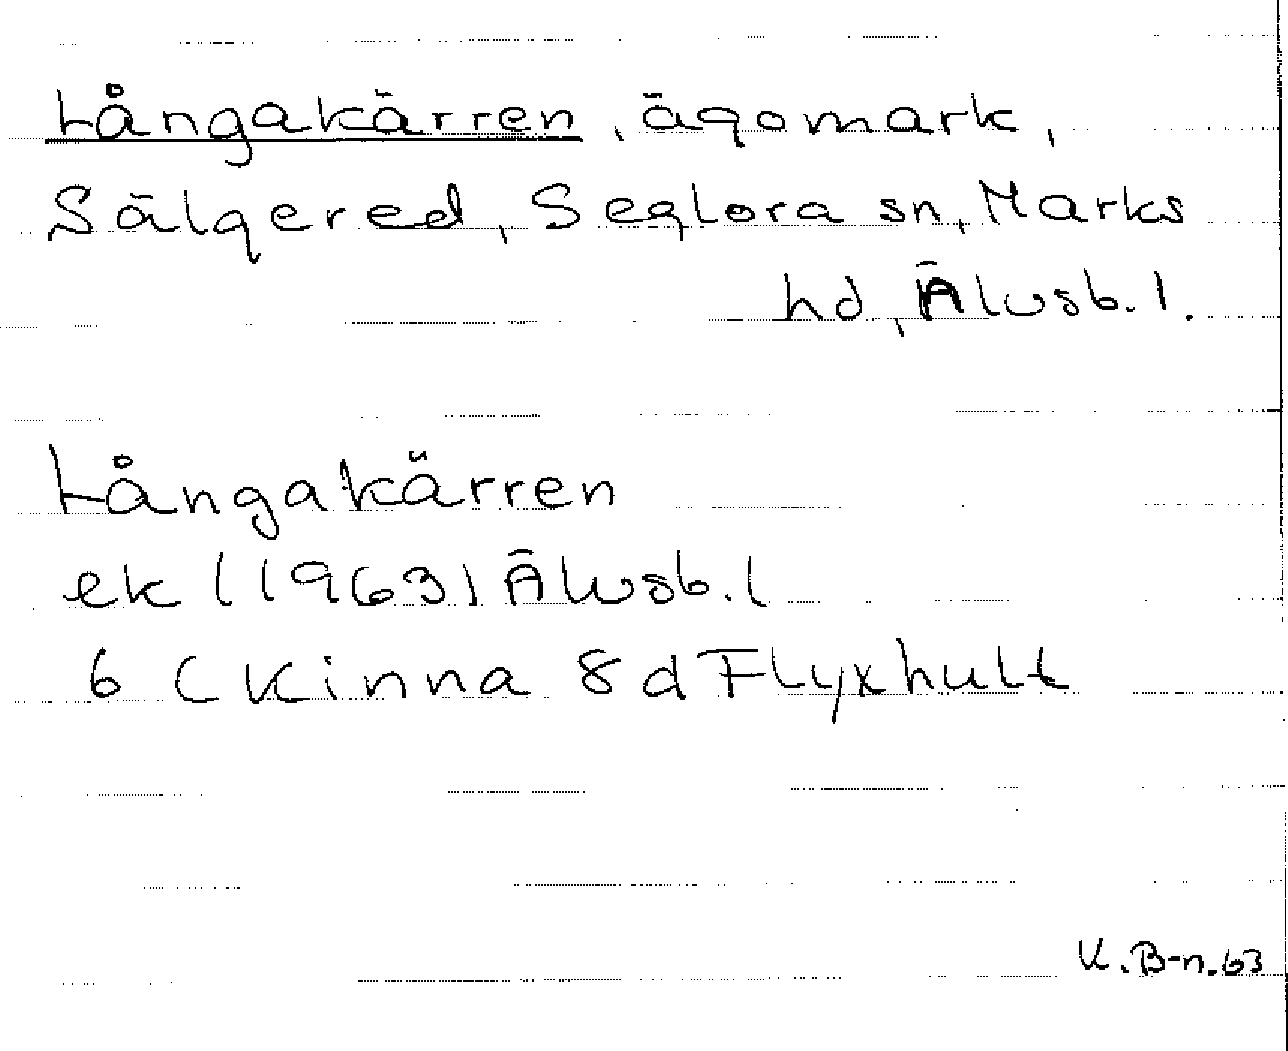 Långakärren, ägomark,
Sälgered, Seglora sn, Marks
hd, Älvsb. l.
Långakärren
ek (1963) Älvsb. l
6 C Kinna 8 d Flyxhult
K. B-n. 63